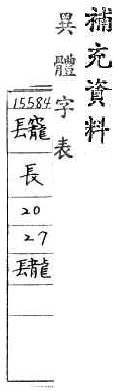 補充資料
異體字表
15584
長
20
27